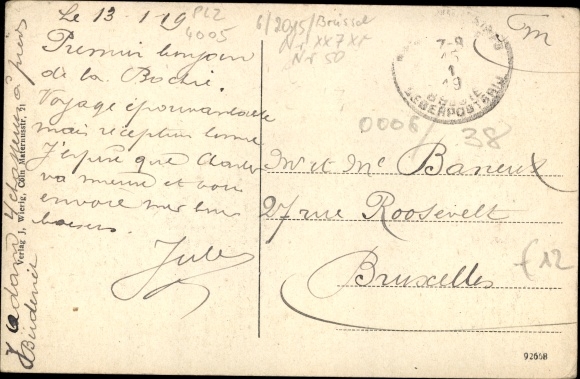 Le 13-1-19
Premier bonjour
de la Bochie.
Voyage épouvantable
mais réception bonne
J'espère que Charles
va mieux et vous
envoie mes bons
baisers.
Jules
Verlag J. Wierig, Cöln Maternusstr. 21
PLZ
4005
6/2015/Brüssel
Nr XX7XI
Nr 50
FM
7-8
1
19
BELGIE
LEGERPOSTERIJ
0006/
38
Mr et Me Baneux
27 rue Roosevelt
Bruxelles
€12
92668